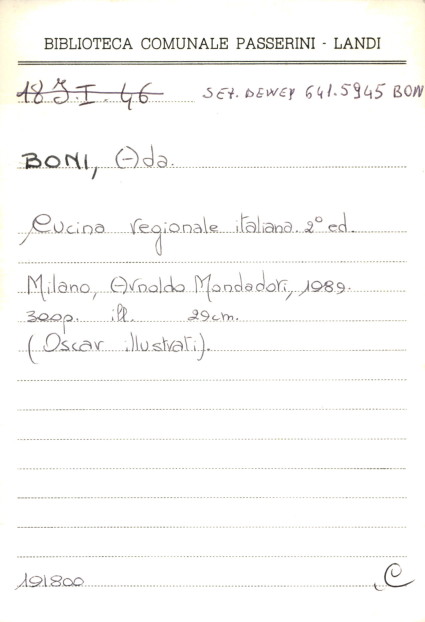 BIBLIOTECA COMUNALE PASSERINI - LANDI
18 J.I. 46 SEZ. DEWEY 641.5945 BON
BONI, Ada.
Cucina regionale italiana. 2° ed.
Milano, Arnoldo Mondadori, 1989.
300p. ill. 29cm.
(Oscar illustrati).
191800 C